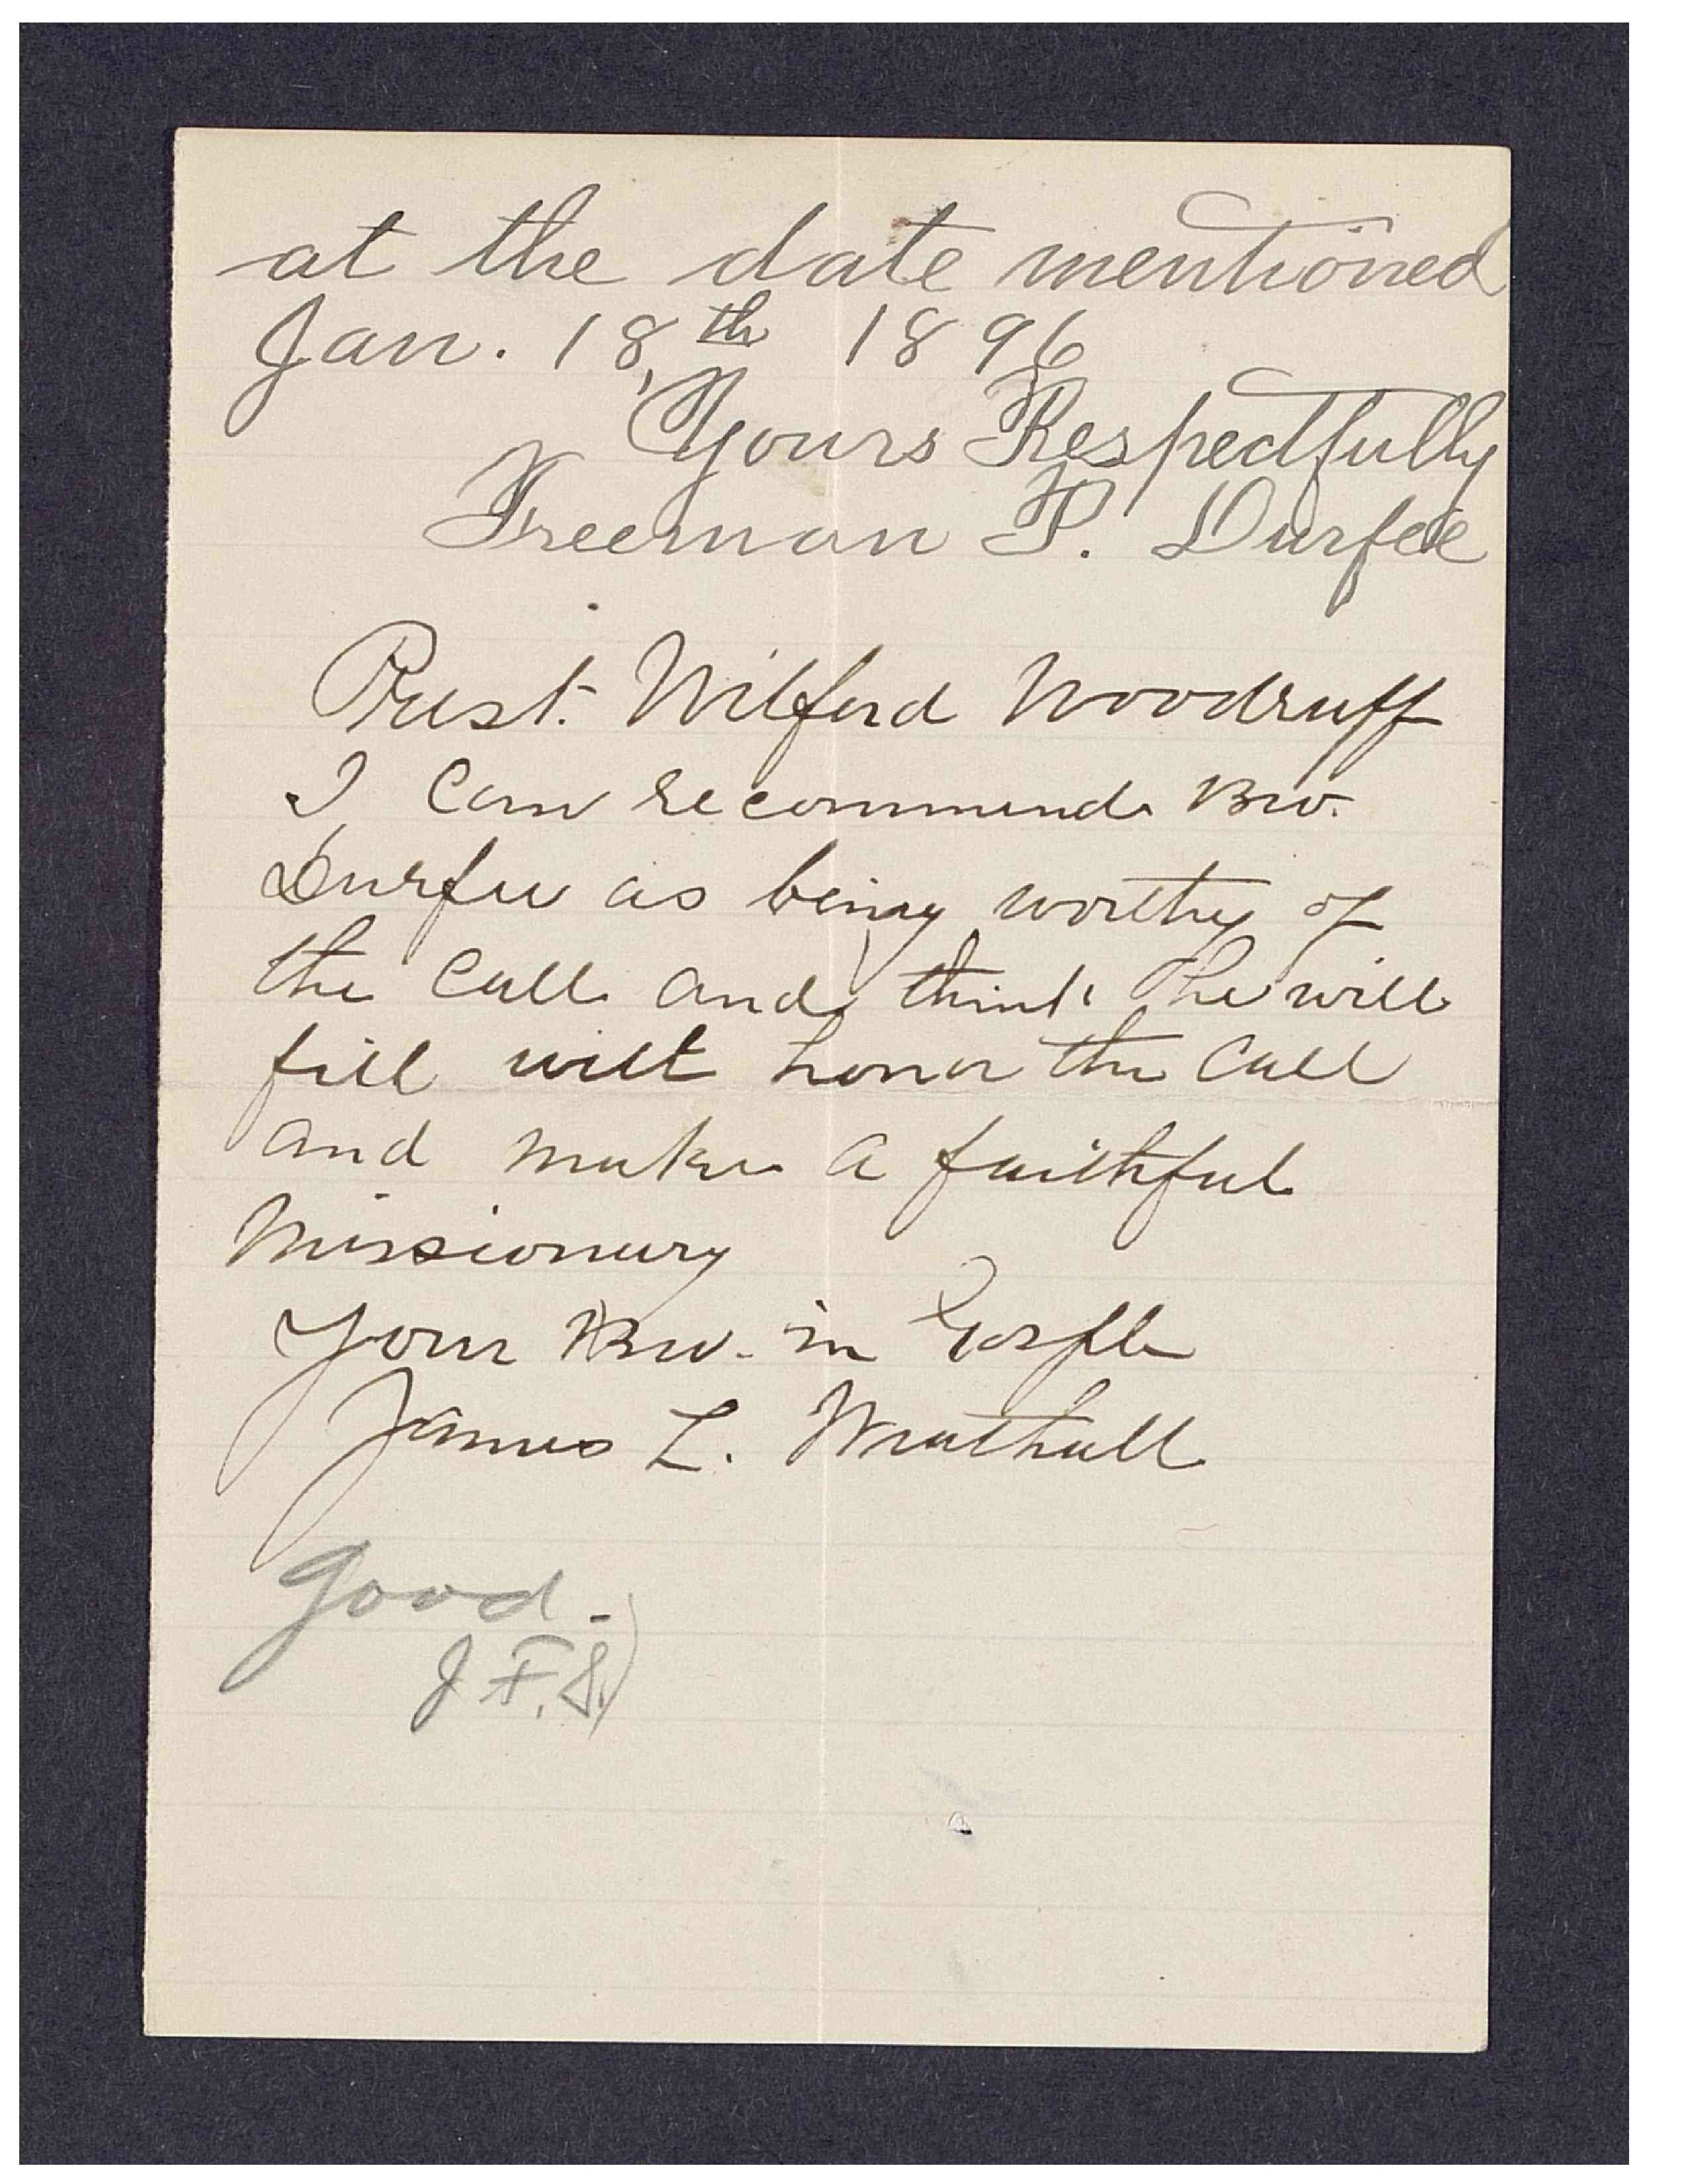 at the date mentioned
Jan. 18,th 1896
Yours Respectfully
Freeman P. Durfee
Prest. Wilford Woodruff
I can recommend Bro.
Durfee as being worthy of
the call and think he will
fill will honor the call
and make a faithful
Missionary
Your Bro. in Gospel
James L. Wrathall
Good.
J. F. S.)